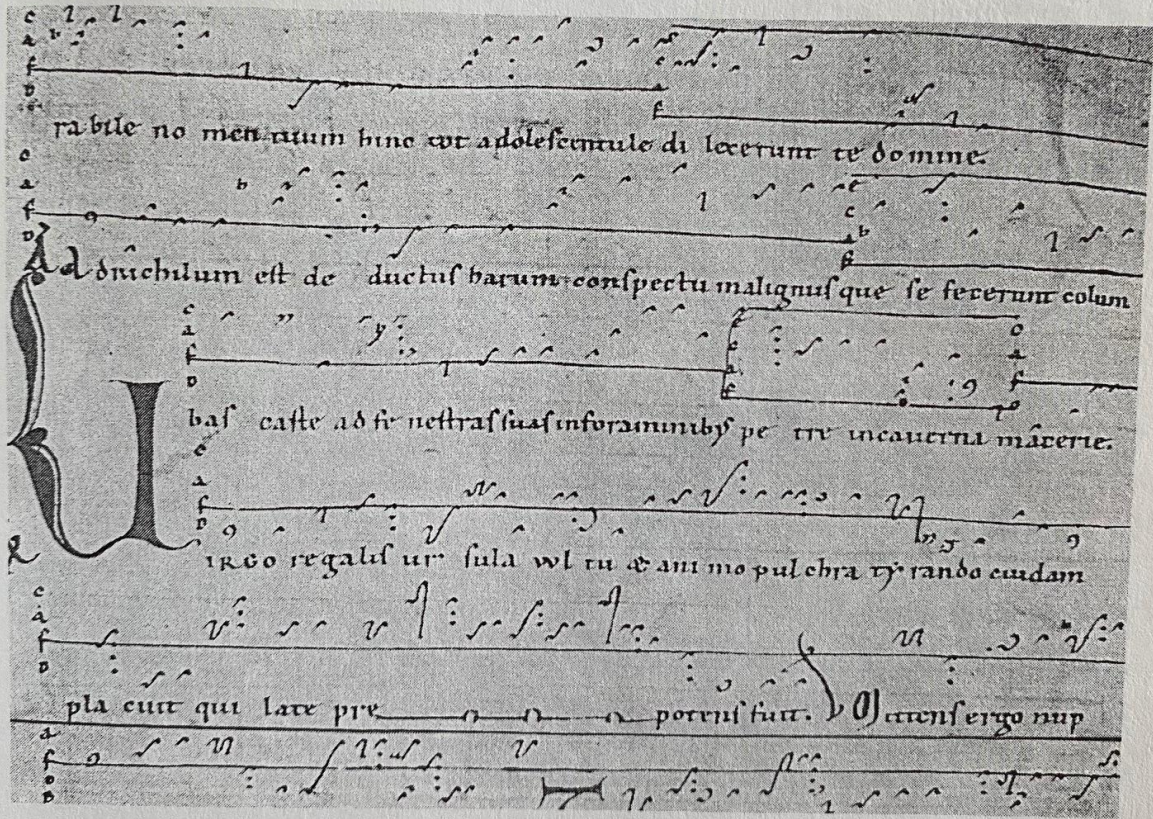 rabile no men tuum hinc et adolescentule di lexerunt te domine.
Ad dnichilum est de ductus harum conspectu malignus que se fecerunt colum
bas caste ad fe nestras suas inforaminiby pe tre incauerna macerie.
VIRGO regalis ur sula wl tu & ani mo pulchra ty rando cuidam
pla cuit qui late pre potens fuit. Mittens ergo nup